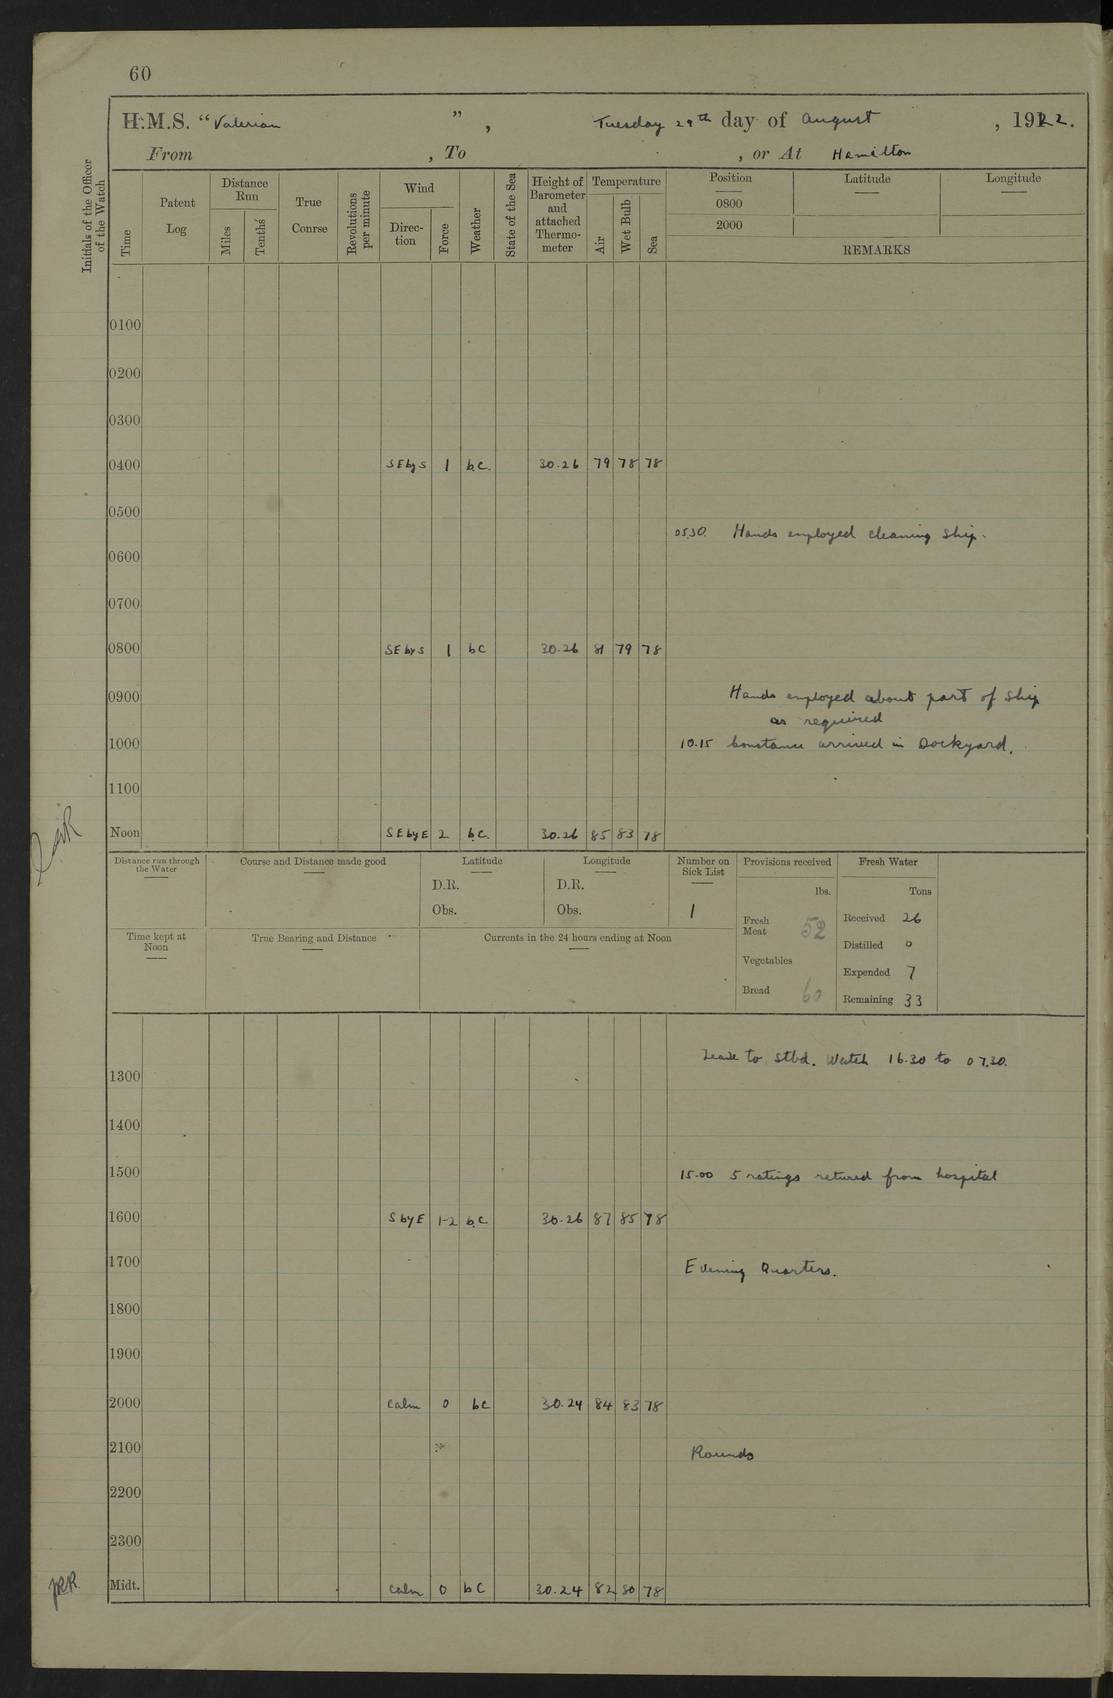 60
H.M.S. “Valerian ”, Tuesday 29th day of August, 1922.
From , To , or At Hamilton
Initials of the Officer of the Watch
Time
Patent Log
Distance Run
Miles
Tenths
True Conrse
Revolutions per minute
Wind
Direc-tion
Force
Weather
State of the Sea
Height of Barometer and attached Thermo-meter
Temperature
Air
Wet Bulb
Sea
Position
Latitude
Longitude
0800
2000
REMARKS
0100
0200
0300
0400 SEbyS 1 b.c. 30.26 79 78 78
0500
0530. Hands employed cleaning ship.
0600
0700
0800 SEbyS 1 bc 30.26 81 79 78
0900 Hands employed about part of ship
as required
1000 10.15 Constance arrived in Dockyard.
1100
Noon SEbyE 2 b.c. 30.26 85 83 78
Distance run through the Water
Course and Distance made good
Latitude
D.R.
Obs.
Longitude
D.R.
Obs.
Number on Sick List
1
Provisions received
lbs.
Fresh Meat 52
Vegetables
Bread 60
Fresh Water
Tons
Received 26
Distilled 0
Expended 7
Remaining 33
Time kept at Noon
True Bearing and Distance
Currents in the 24 hours ending at Noon
Leave to stbd. Watch 16.30 to 07.30.
1300
1400
1500 15.00 5 ratings retured from hospital
1600 SbyE 1-2 b.c 30.26 87 85 78
1700 Evening Quarters.
1800
1900
2000 Calm 0 bc 30.24 84 83 78
2100 Rounds
2200
2300
Midt. Calm 0 bc 30.24 82 80 78